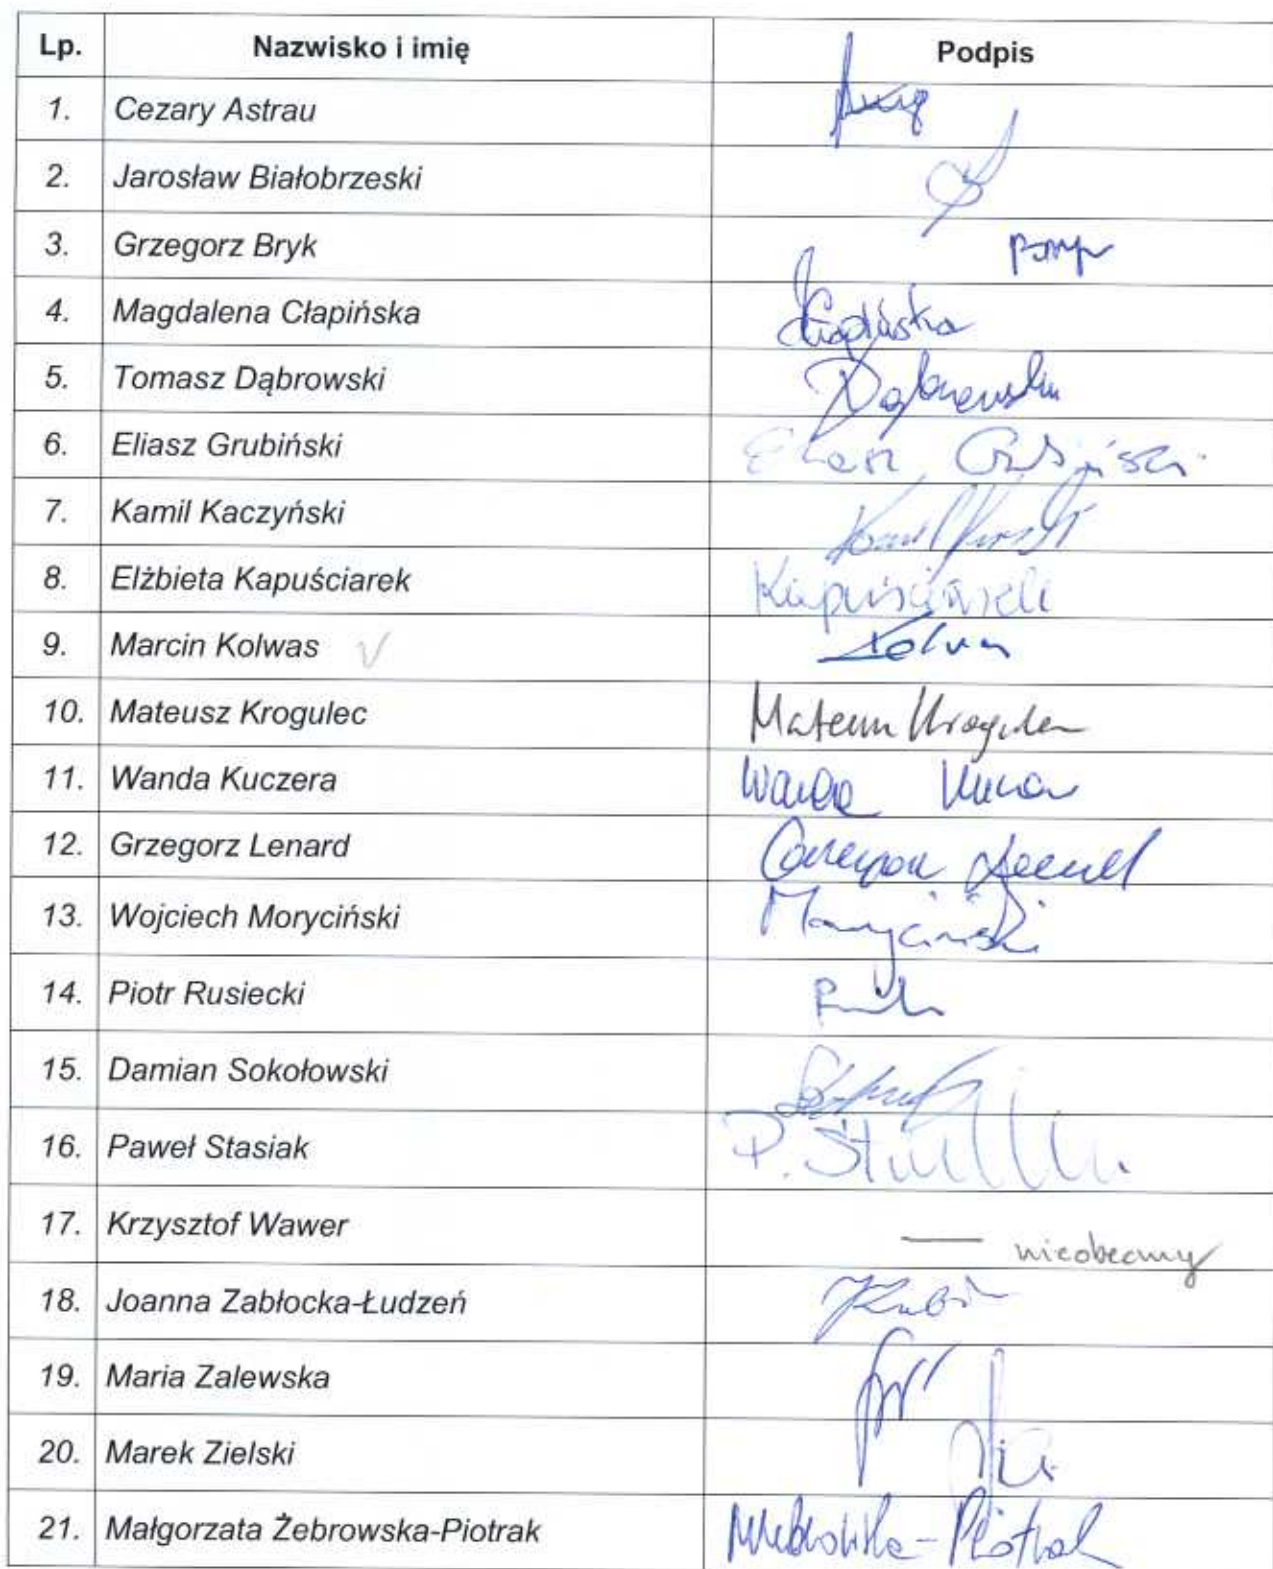 Lp. Nazwisko i imię Podpis
1. Cezary Astrau
2. Jarosław Białobrzeski
3. Grzegorz Bryk
4. Magdalena Cłapińska
5. Tomasz Dąbrowski Dąbrowski
6. Eliasz Grubiński Eliasz Grubiński
7. Kamil Kaczyński Kamil
8. Elżbieta Kapuściarek Kapuściarek
9. Marcin Kolwas V Kolwas
10. Mateusz Krogulec Mateusz Krogulec
11. Wanda Kuczera Wanda
12. Grzegorz Lenard Grzegorz Lenard
13. Wojciech Moryciński Moryciński
14. Piotr Rusiecki
15. Damian Sokołowski
16. Paweł Stasiak P.
17. Krzysztof Wawer — nieobecny
18. Joanna Zabłocka-Łudzeń
19. Maria Zalewska
20. Marek Zielski
21. Małgorzata Żebrowska-Piotrak MŻebrowska-Piotrak